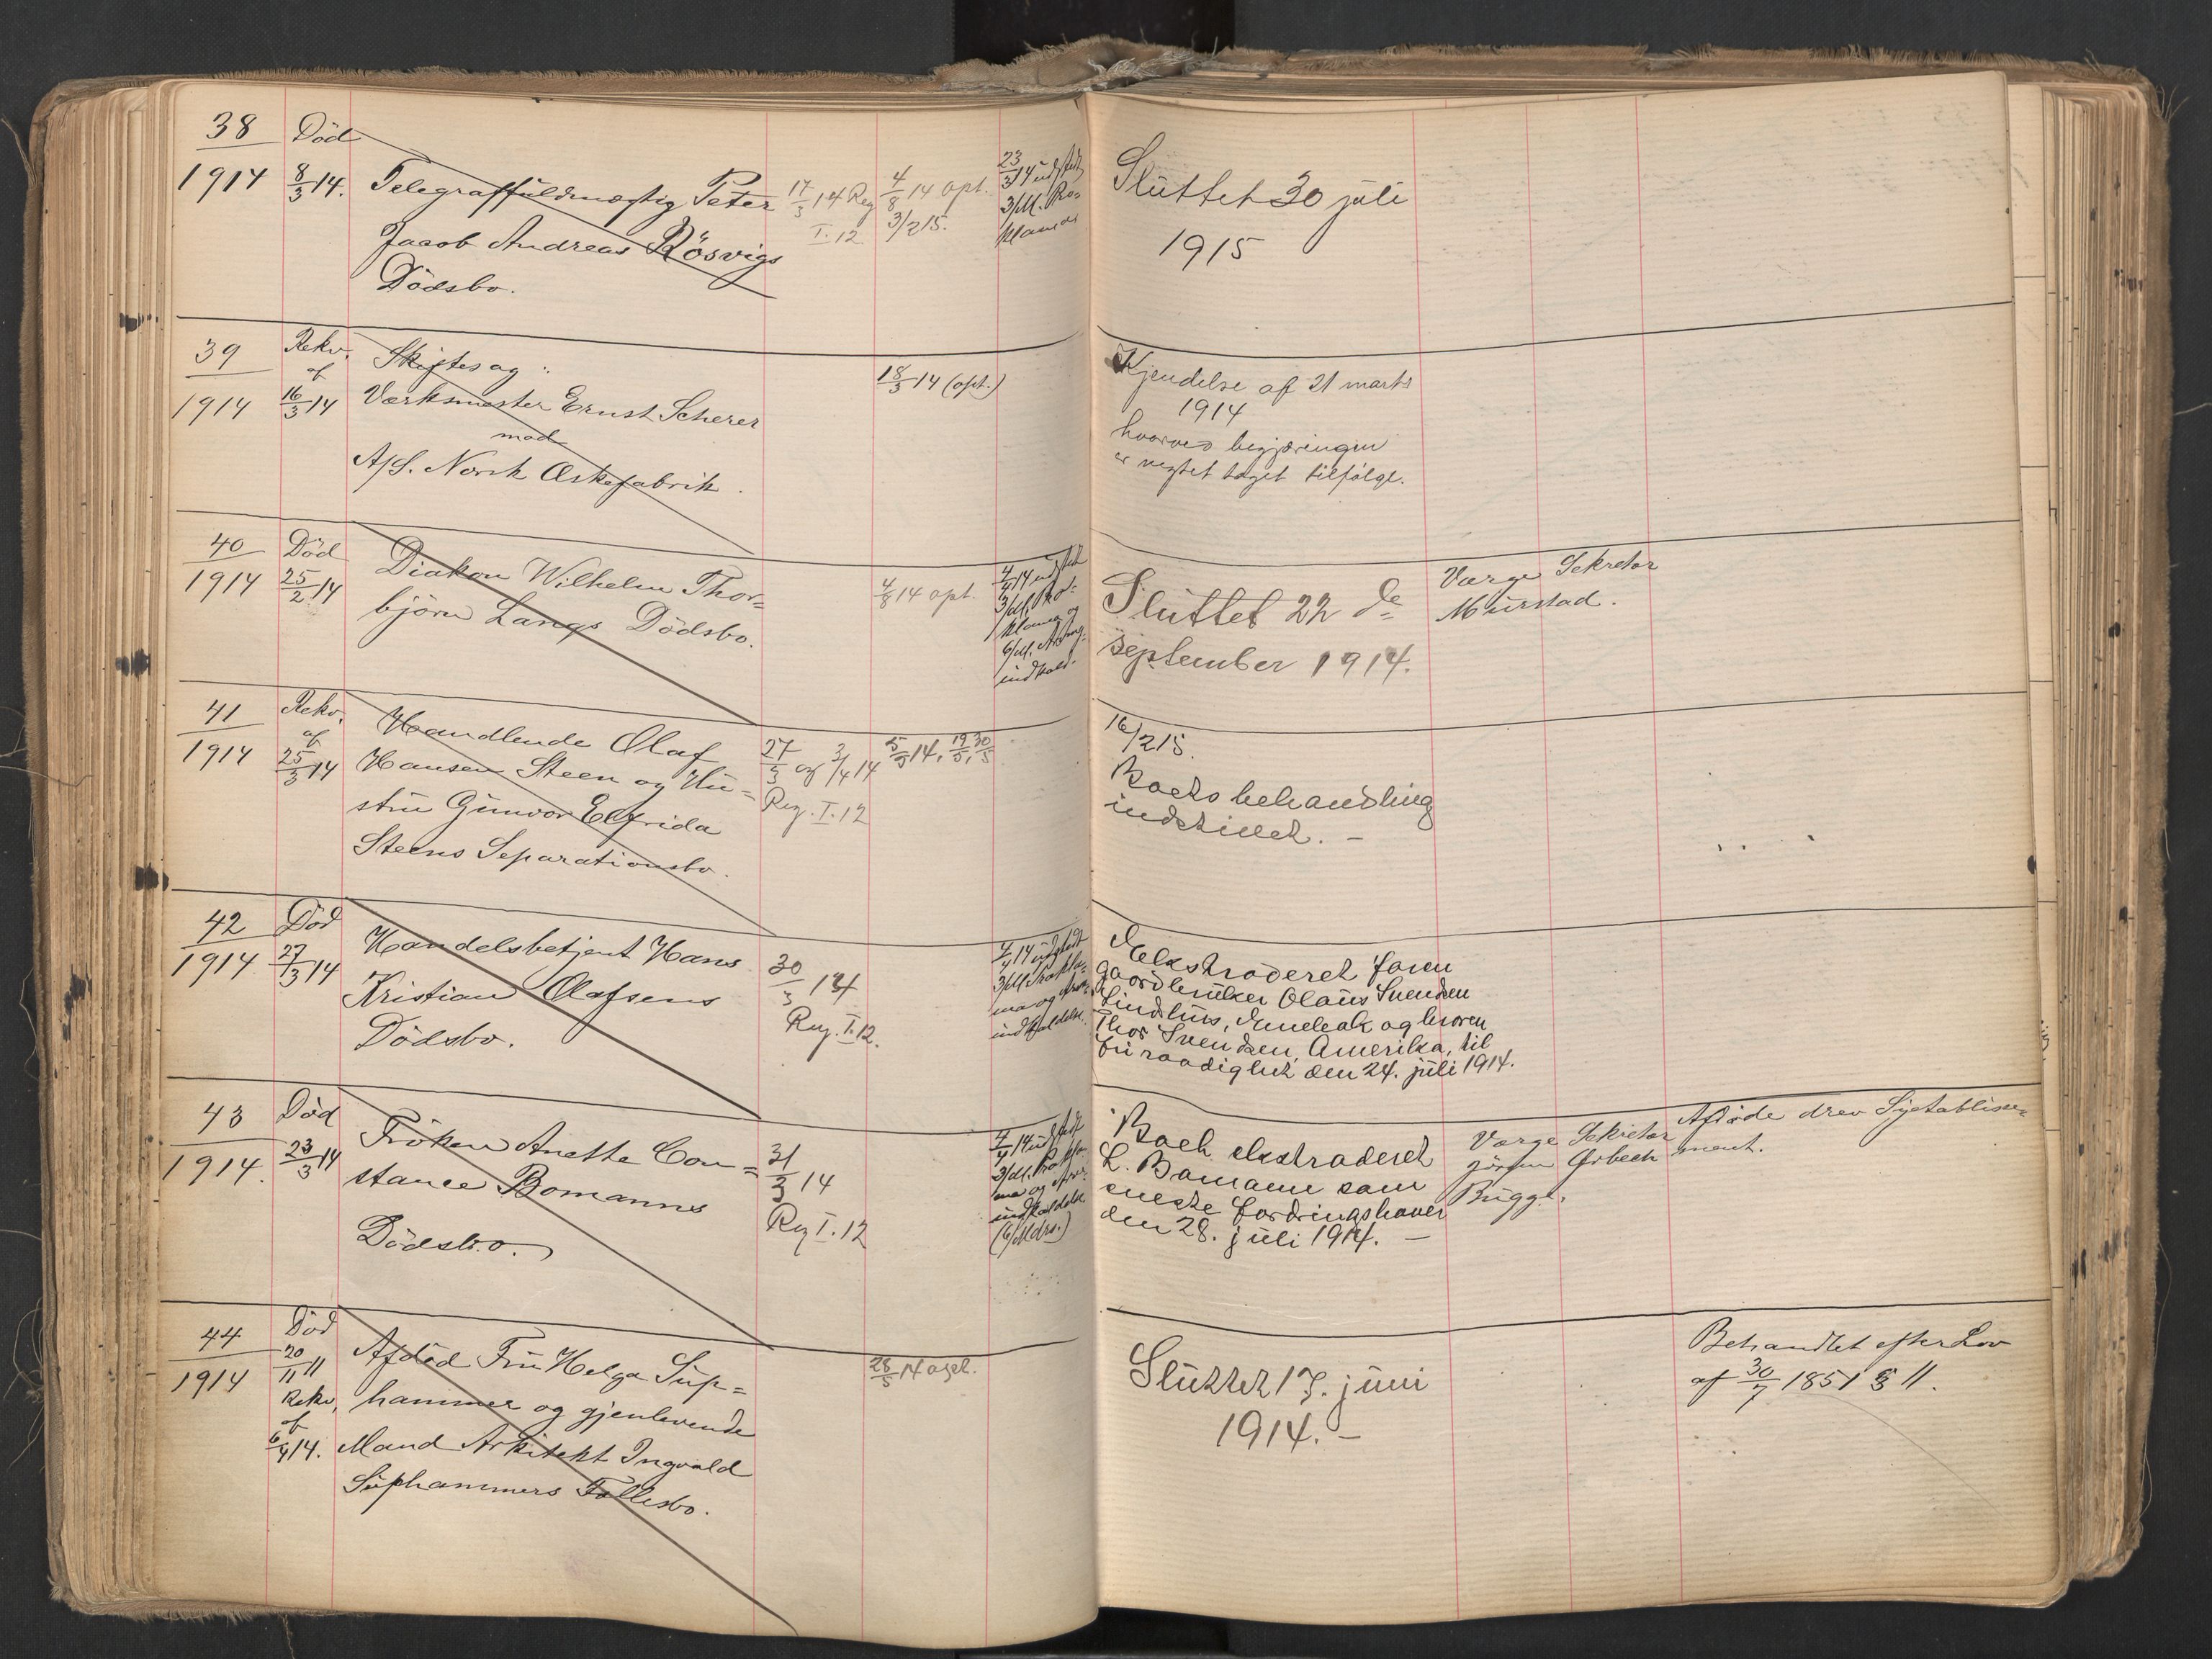 38
1914
Död
8/3 14.
Telegraffuldmægtig Peter
Jacob Andreas Rösvigs
Dödsbo.
17/3 14 Reg
I. 12.
4/8 14 opt.
3/2 15.
23/3 14 udstedt
3/M. Pro-
klama
Sluttet 30 juli
1915
39
1914
Rekv.
af
16/3 14
Skiftesag:
Værksmester Ernst Scherer
mod
A/S. Norsk Æskefabrik.
18/3 14 (opt.)
Kjendelse af 21 marts
1914
hvorved begjæringen
er negtet taget tilfölge.
40
1914
Död
25/2 14
Diakon Wilhelm Thor=
björn Langs Dödsbo.
4/8 14 opt.
4/4 14 udstedt
3/M. Pro-
klama og
6/M. Arving-
indkald.
Sluttet 22 de
september 1914.
Værge Sekretær
Murstad.
41
1914
Rekv.
af
25/3 14
Handlende Olaf
Hansen Steen og Hu=
stru Gunvor Elfrida
Steens Separationsbo.
27/3 og 3/4 14
Reg. I. 12
5/5 14, 19/5, 30/5
16/2 15.
Boets behandling
indstillet. –
42
1914
Död
27/3 14
Handelsbetjent Hans
Kristian Olafsens
Dödsbo.
30/3 14
Reg. I. 12.
4/4 14 udstedt
3/M. Prokla-
ma og Arv.
indkaldelse.
Ekstraderet faren
gaardbruker Olaus Svendsen
Lindhus, og broren
Thor Svendsen, Amerika, til
fri raadighet den 24. juli 1914.
43
1914.
Död
23/3 14
Fröken Anette Con=
stance Bomanns
Dödsbo.
31/3 14
Reg I. 12
4/4 14 udstedt
3/M. Prokla-
ma og Arv.
indkaldelse
(6/Mdrs.)
Boet ekstraderet
L. Bomann som
eneste fordringshaver
den 28. juli 1914. –
Værge Sekretær
Jörgen Ørbech
Bugge.
Afdöde drev Syetablisse=
ment.
44
1914
Död
20/11 11
Rekv.
af
6/4 14.
Afdöd Fru Helga Sup=
hammer og gjenlevende
Mand Arkitekt Ingvald
Suphammers Fællesbo.
28/5 14
Sluttet 17. juni
1914. –
Behandlet efter Lov
af 30/7 1851 § 11.